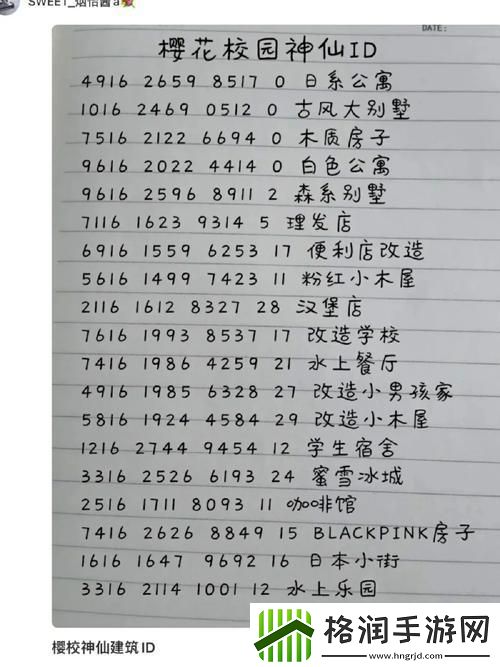 SWEET_烟怡酱a
DATE:
樱花校园神仙ID
4916 2659 8517 0 日系公寓
1016 2469 0512 0 古风大别墅
7516 2122 6694 0 木质房子
9616 2022 4414 0 白色公寓
9616 2596 8911 2 森系别墅
7116 1623 9314 5 理发店
6916 1559 6253 17 便利店改造
5616 1499 7423 11 粉红小木屋
2116 1612 8327 28 汉堡店
7616 1993 8537 17 改造学校
7416 1986 4259 21 水上餐厅
4916 1985 6328 27 改造小男孩家
5816 1924 4584 29 改造小木屋
1216 2744 9454 12 学生宿舍
3316 2526 6193 24 蜜雪冰城
2516 1711 8093 11 咖啡馆
7416 2626 8849 15 BLACKPINK房子
1616 1647 9692 16 日本小街
3316 2114 1001 12 水上乐园
樱校神仙建筑ID
格润手游网
www.hngrjd.com